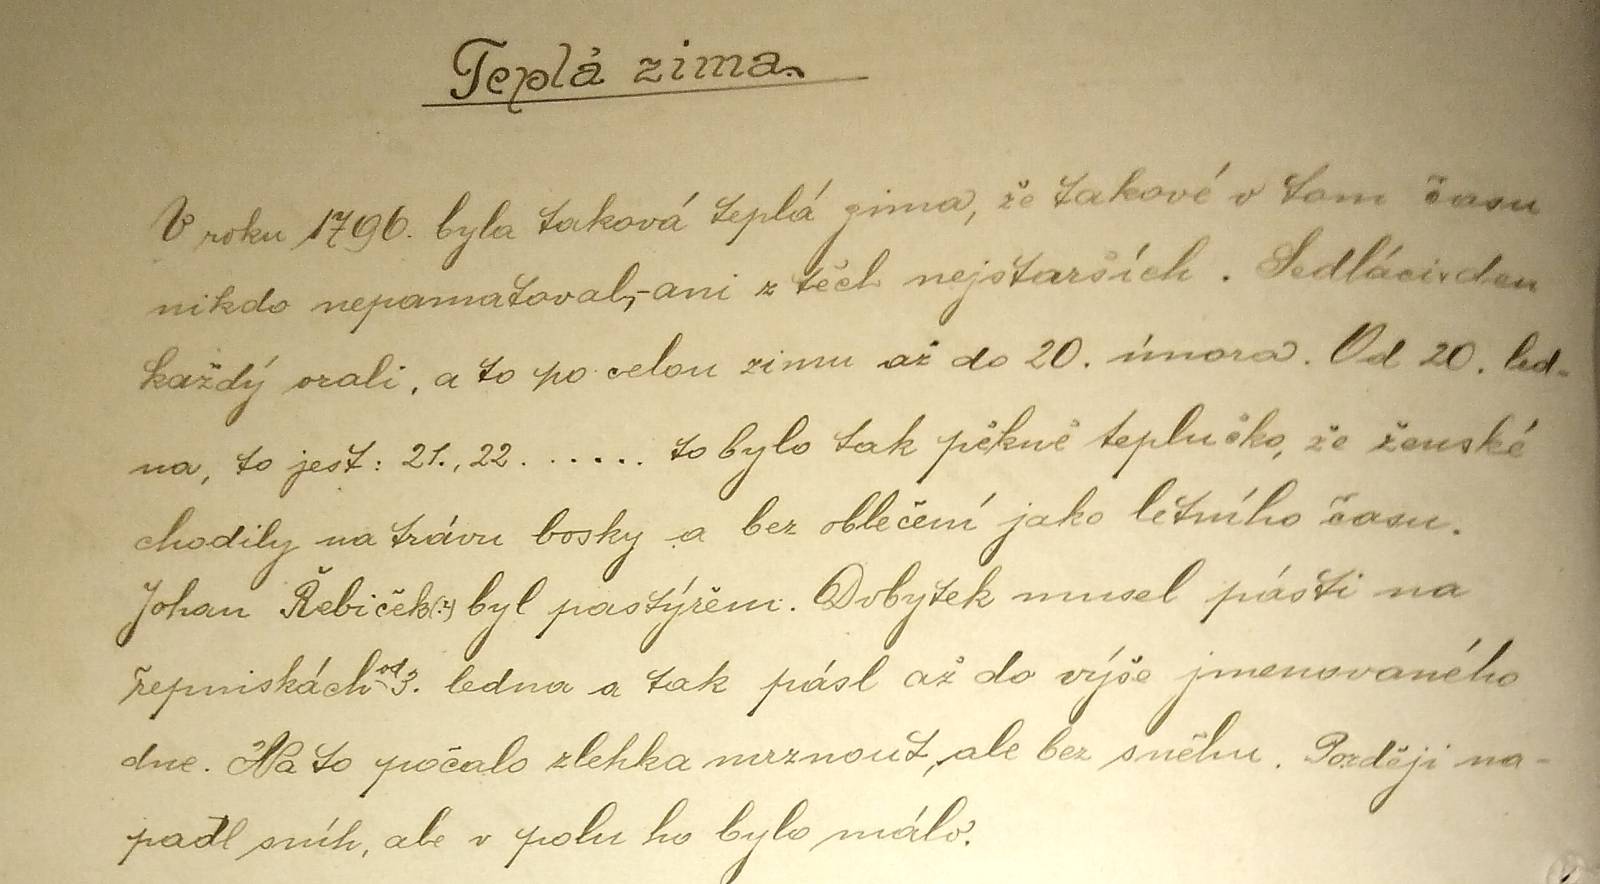 Teplá zima.
V roku 1796. byla taková teplá zima, že takové v tom času
nikdo nepamatoval,-ani z těch nejstarších. Sedláci den
každý orali, a to po celou zimu až do 20. února. Od 20. led-
na, to jest: 21., 22. ..... to bylo tak pěkně teplučko, že ženské
chodily na trávu bosky a bez oblečení jako letního času.
Johan Řebiček(?) byl pastýřem. Dobytek musel pásti na
řepniskách od 3. ledna a tak pásl až do výše jmenovaného
dne. Na to počalo zlehka mrznout, ale bez sněhu. Později na-
padl sníh, ale v polu ho bylo málo.